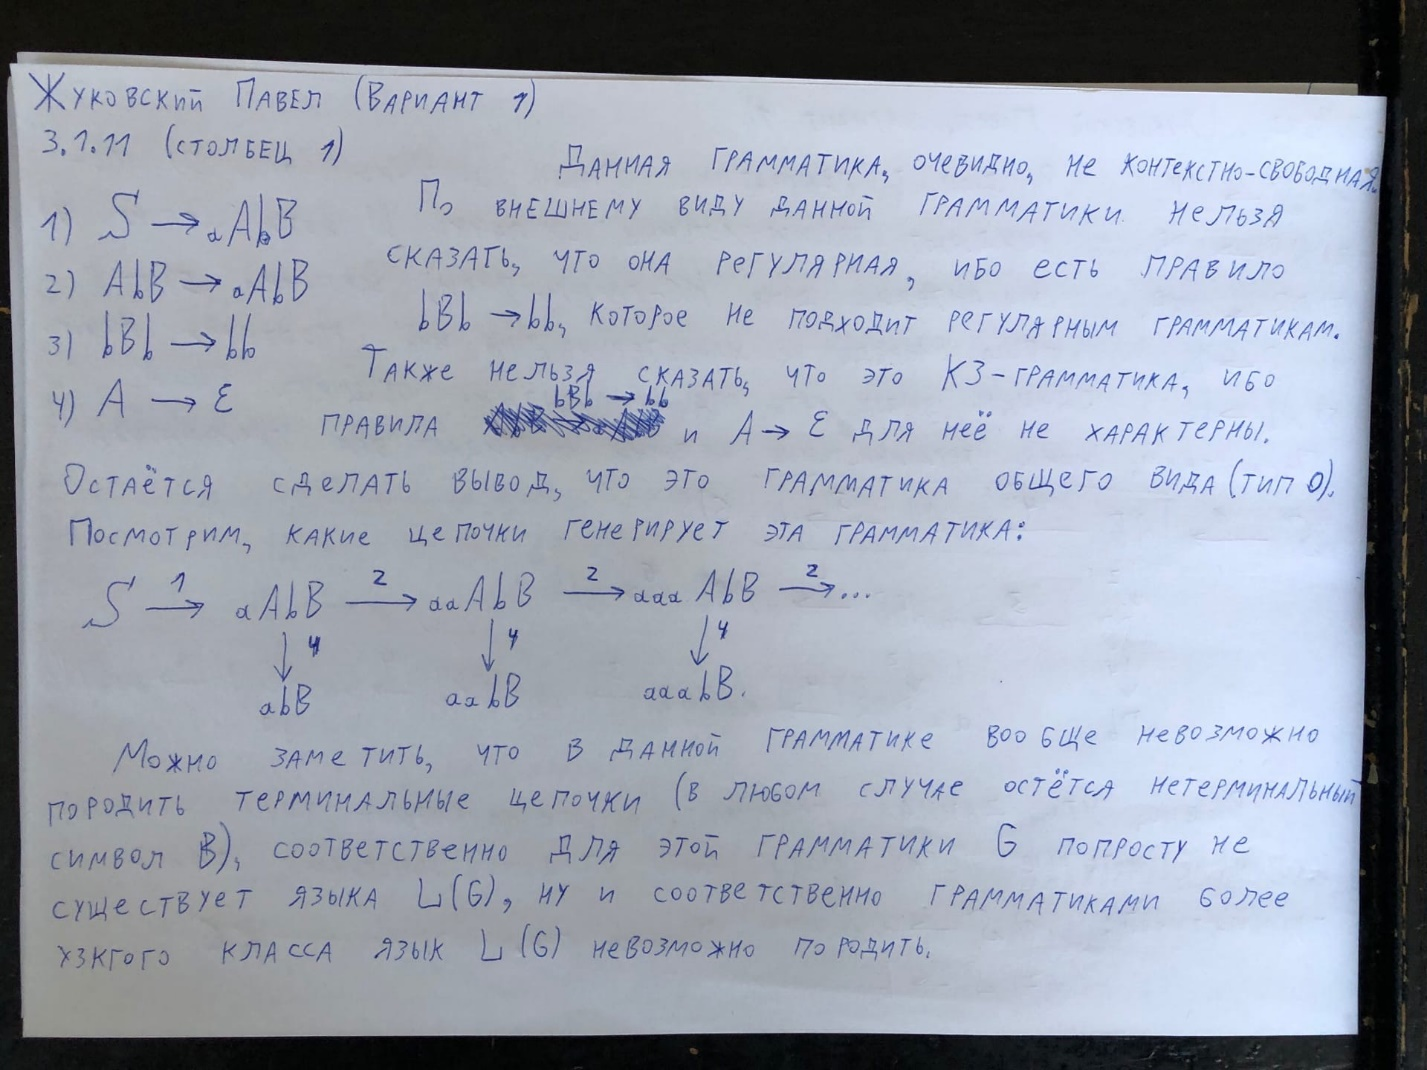 Жуковский Павел (Вариант 1)
3.1.11 (столбец 1)
Данная грамматика, очевидно, не контекстно-свободная.
1) S → aAbB
По внешнему виду данной грамматики нельзя
2) AbB → aAbB
сказать, что она регулярная, ибо есть правило
3) bBb → bb
bBb → bb, которое не подходит регулярным грамматикам.
4) A → ε
Также нельзя сказать, что это КЗ-грамматика, ибо
правила bBb → bb и A → ε для неё не характерны.
Остаётся сделать вывод, что это грамматика общего вида (тип 0).
Посмотрим, какие цепочки генерирует эта грамматика:
S 1→ aAbB 2→ aaAbB 2→ aaaAbB 2→ ...
↓4 ↓4 ↓4
abB aabB aaabB.
Можно заметить, что в данной грамматике вообще невозможно
породить терминальные цепочки (в любом случае остётся нетерминальный
символ B), соответственно для этой грамматики G попросту не
существует языка L(G), ну и соответственно грамматиками более
узкгого класса язык L(G) невозможно породить.